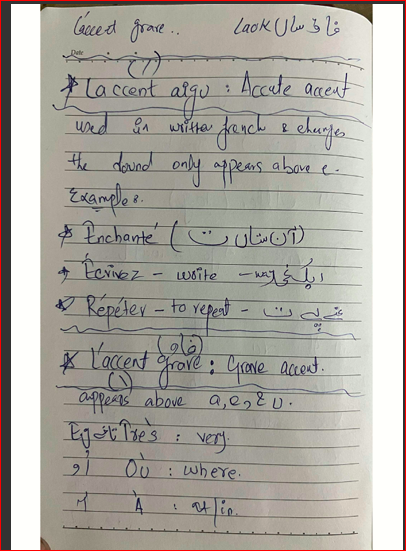 L'accent grave..
Date
(/)
L'accent aigu : Accute accent
used in written french & changes
the sound only appears above e.
Examples.
Enchanté (
Écrivez - write -
Répéter - to repeat -
L'accent grave : Grave accent.
(\)
appears above a, e, & u.
Eg Très : very.
Où : where.
À : at/in.